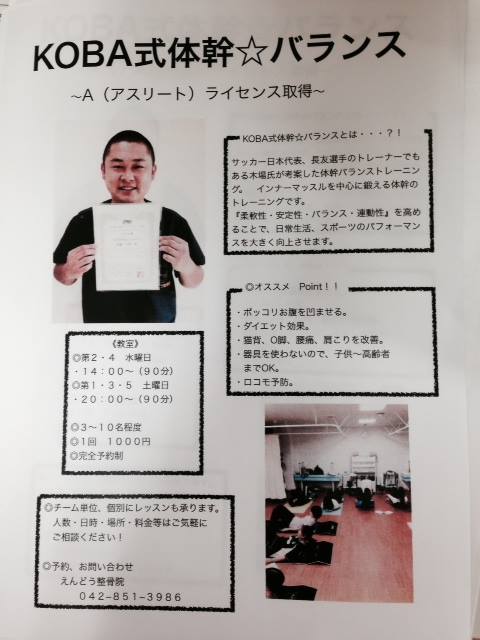 KOBA式体幹☆バランス
~A（アスリート）ライセンス取得~
KOBA式体幹☆バランスとは・・・？！
サッカー日本代表、長友選手のトレーナーでも
ある木場氏が考案した体幹バランストレーニン
グ。　インナーマッスルを中心に鍛える体幹の
トレーニングです。
『柔軟性・安定性・バランス・連動性』を高め
ることで、日常生活、スポーツのパフォーマン
スを大きく向上させます。
◎オススメ　Point！！
・ポッコリお腹を凹ませる。
・ダイエット効果。
・猫背、O脚、腰痛、肩こりを改善。
・器具を使わないので、子供～高齢者
までOK。
・ロコモ予防。
《教室》
◎第２・４　水曜日
・１４：００～（９０分）
◎第１・３・５　土曜日
・２０：００～（９０分）
◎３～１０名程度
◎１回　１０００円
◎完全予約制
◎チーム単位、個別にレッスンも承ります。
人数・日時・場所・料金等はご気軽に
ご相談ください！
◎予約、お問い合わせ
えんどう整骨院
０４２－８５１－３９８６